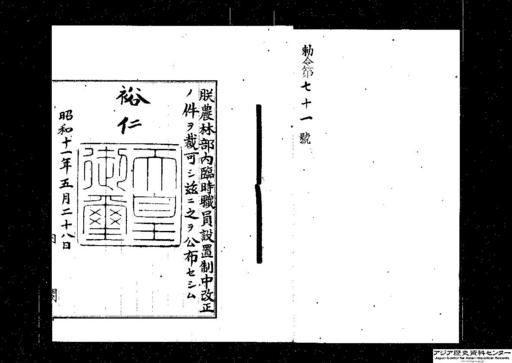 勅令第七十一號
朕農林部內臨時職員設置制中改正
ノ件ヲ裁可シ茲ニ之ヲ公布セシム
裕仁
天皇御璽
昭和十一年五月二十八日
アジア歴史資料センター
Japan Center for Asian Historical Records